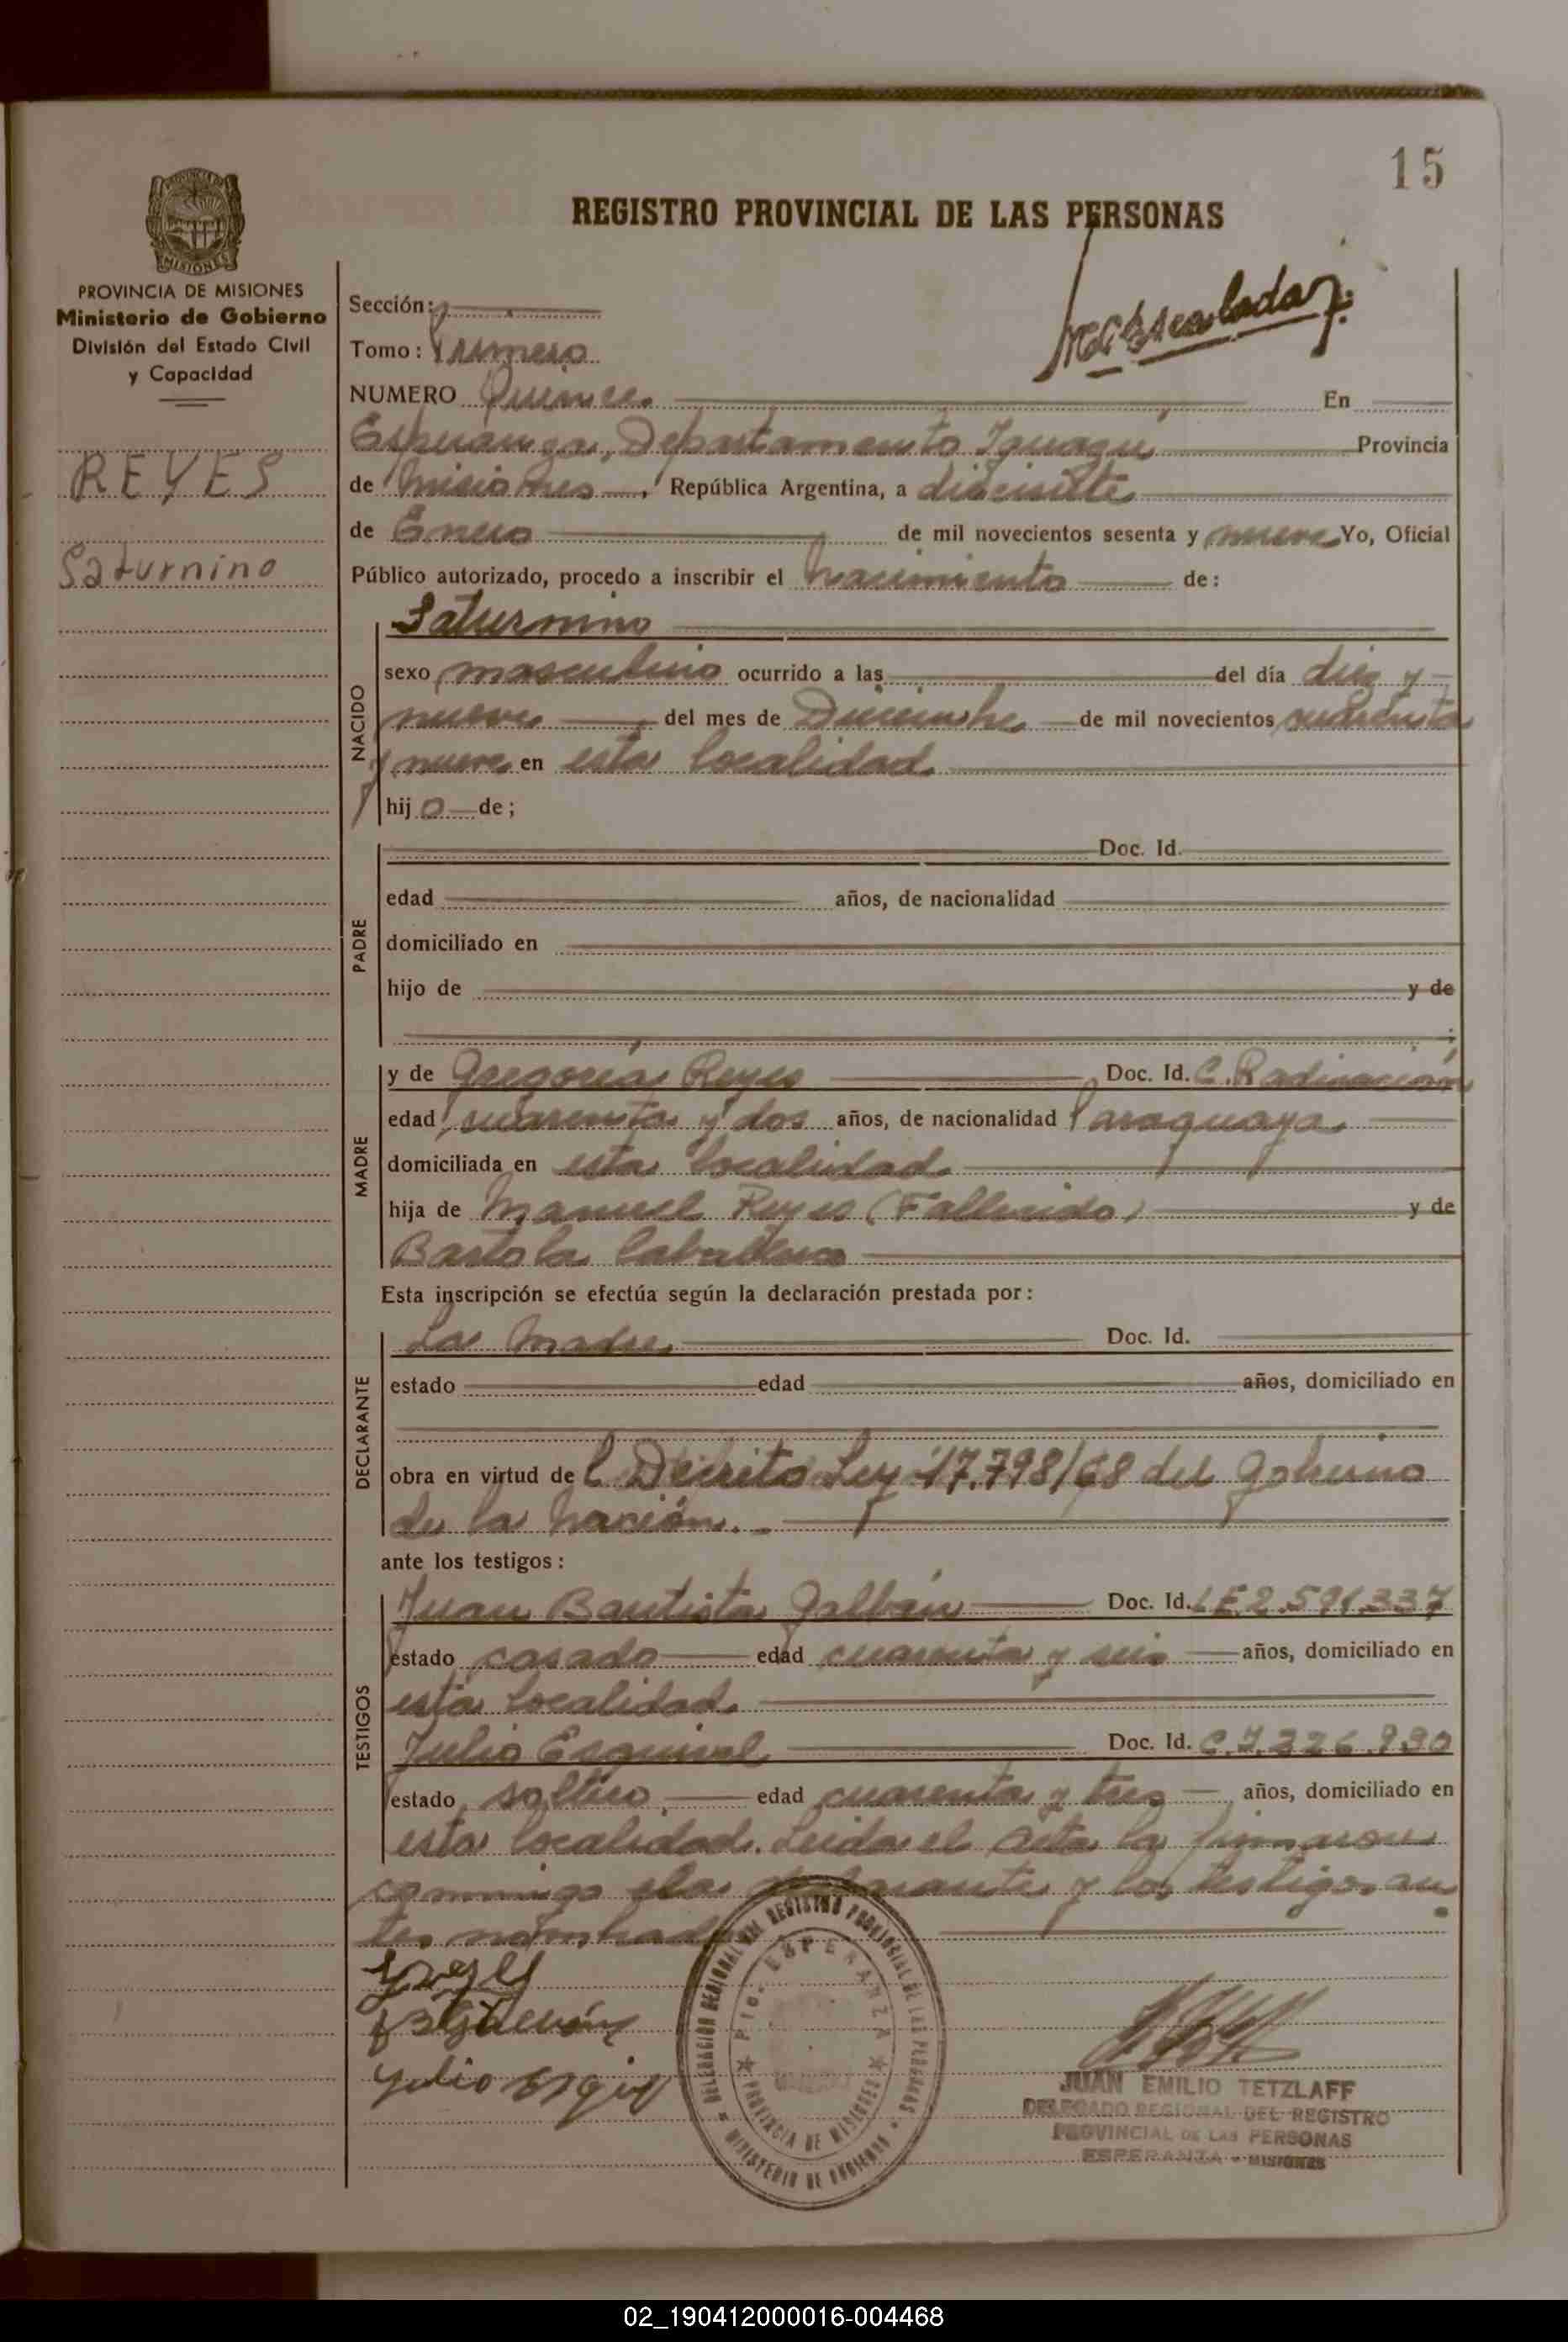 15
REGISTRO PROVINCIAL DE LAS PERSONAS
MISIONES
PROVINCIA DE MISIONES
Ministerio de Gobierno
División del Estado Civil
y Capacidad
REYES
Saturnino
Sección:
Tomo: Primero
NUMERO Quince En
Esperanza, Departamento Iguazú Provincia
de Misiones, República Argentina, a diecisiete
de Enero de mil novecientos sesenta y nueve Yo, Oficial
Público autorizado, procedo a inscribir el nacimiento de:
NACIDO
Saturnino
sexo masculino ocurrido a las del día diez y
nueve del mes de Diciembre de mil novecientos cuarenta
y nueve en esta localidad
hijo de;
PADRE
Doc. Id.
edad años, de nacionalidad
domiciliado en
hijo de y de
MADRE
y de Gregoria Reyes Doc. Id. C. Radicación
edad cuarenta y dos años, de nacionalidad Paraguaya
domiciliada en esta localidad
hija de Manuel Reyes (Fallecido) y de
Bartola Caballero
Esta inscripción se efectúa según la declaración prestada por:
DECLARANTE
La Madre Doc. Id.
estado edad años, domiciliado en
obra en virtud del Decreto Ley 17.798/68 del Gobierno
de la Nación.-
ante los testigos:
TESTIGOS
Juan Bautista Galbán Doc. Id. LE.2.591.337
estado casado edad cuarenta y seis años, domiciliado en
esta localidad
Julio Esquivel Doc. Id. C.7.326.930
estado soltero edad cuarenta y tres años, domiciliado en
esta localidad. Leida el Acta la firmaron
conmigo la y los testigos an
tes nombrados
DELEGACIÓN REGIONAL DEL REGISTRO PROVINCIAL DE LAS PERSONAS
MINISTERIO DE GOBIERNO
PTO. ESPERANZA
PROVINCIA DE MISIONES
JUAN EMILIO TETZLAFF
DELEGADO REGIONAL DEL REGISTRO
PROVINCIAL DE LAS PERSONAS
ESPERANZA - MISIONES
02_190412000016-004468